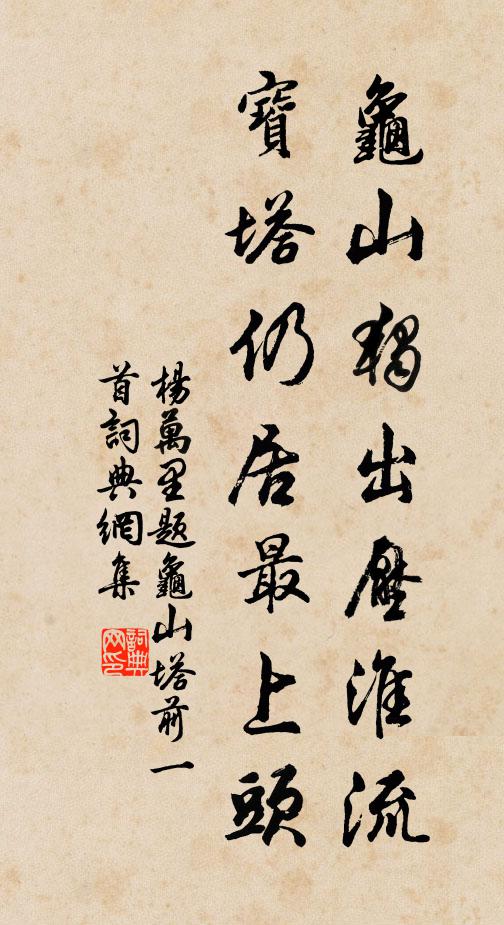 龜山獨出壓淮流
寶塔仍居最上頭
楊萬里題龜山塔前一
首詞典網集
詞典
网印